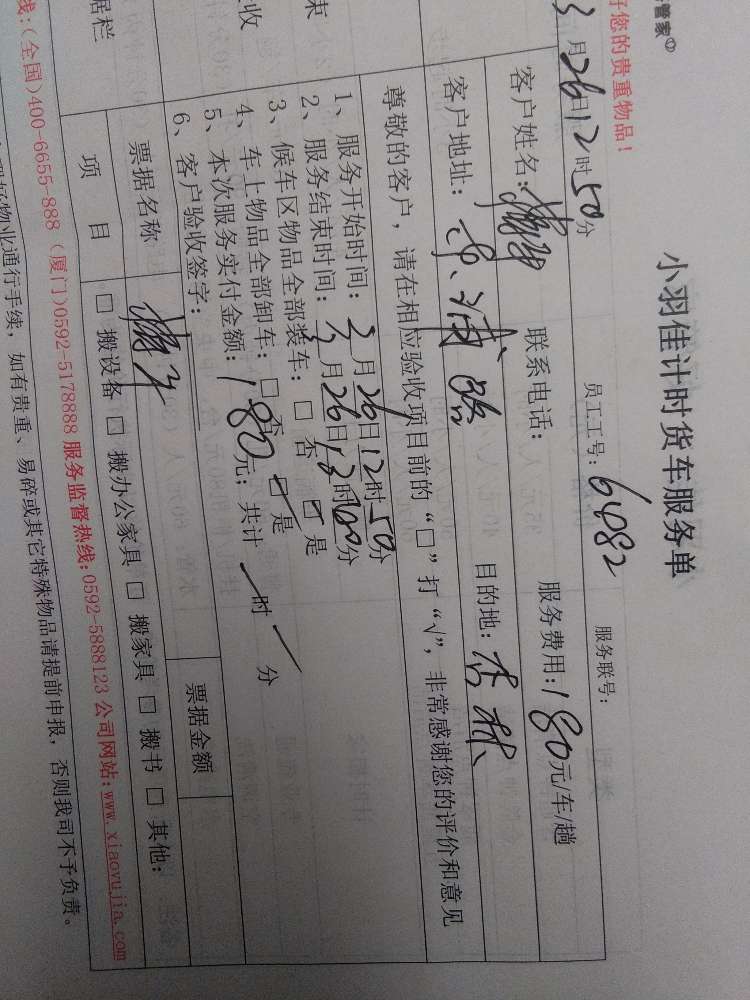 管家
好您的贵重物品!
小羽佳计时货车服务单
3月26日12时50分
员工工号: 6482
服务联号:
客户姓名:
联系电话:
服务费用: 180元/车/趟
客户地址:
目的地: 杏林
尊敬的客户, 请在相应验收项目前的“□”打“√”, 非常感谢您的评价和意见
束
收
1、服务开始时间: 3月26日12时50分
2、服务结束时间: 3月26日13时00分
3、候车区物品全部装车: □ 否 ☑ 是
4、车上物品全部卸车: □ 否 ☑ 是
5、本次服务实付金额: 180元; 共计 / 时 / 分
6、客户验收签字:
据栏
票据名称
票据金额
项 目
□ 搬设备 □ 搬办公家具 □ 搬家具 □ 搬书 □ 其他:
线:(全国)400-6655-888 (厦门)0592-5178888 服务监督热线:0592-5888123 公司网站:www.xiaoyujia.com
物业通行手续, 如有贵重、易碎或其它特殊物品请提前申报, 否则我司不予负责。